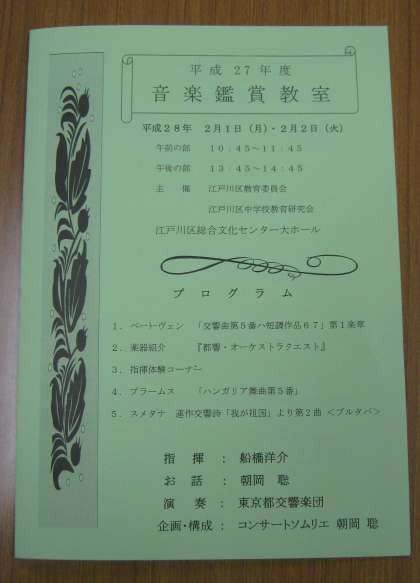 平成 27 年度
音楽鑑賞教室
平成28年 2月1日（月）・2月2日（火）
午前の部 10:45～11:45
午後の部 13:45～14:45
主 催 江戸川区教育委員会
江戸川区中学校教育研究会
江戸川区総合文化センター大ホール
プログラム
1. ベートヴェン 「交響曲第5番ハ短調作品67」第1楽章
2. 楽器紹介 『都響・オーケストラクエスト』
3. 指揮体験コーナー
4. ブラームス 「ハンガリア舞曲第5番」
5. スメタナ 連作交響詩「我が祖国」より第2曲 <ブルタバ>
指 揮 : 船橋洋介
お 話 : 朝岡 聡
演 奏 : 東京都交響楽団
企画・構成 : コンサートソムリエ 朝岡 聡